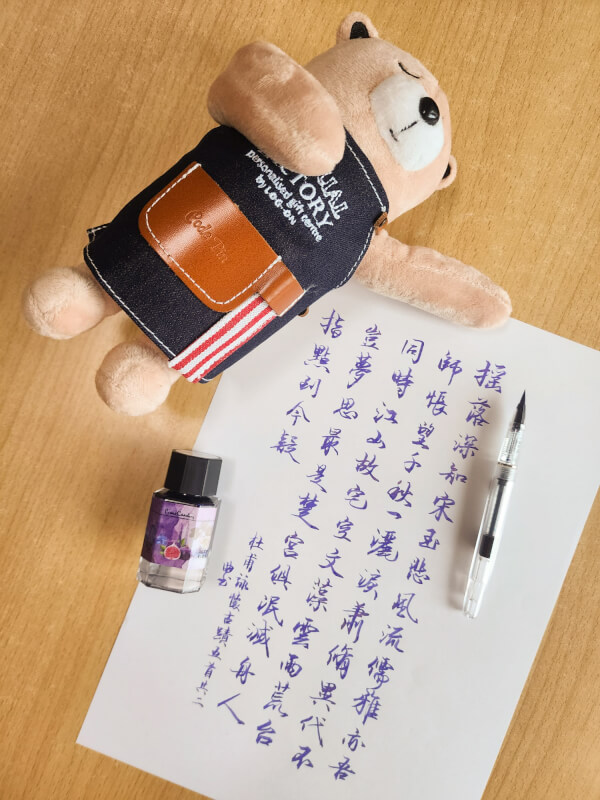 CTORY
personalised gift centre
by LOG-ON
搖落深知宋玉悲風流儒雅亦吾
師悵望千秋一灑淚蕭條異代不
同時江山故宅空文藻雲雨荒台
豈夢思最是楚宮俱泯滅舟人
指點到今疑
杜甫詠懷古蹟五首其二